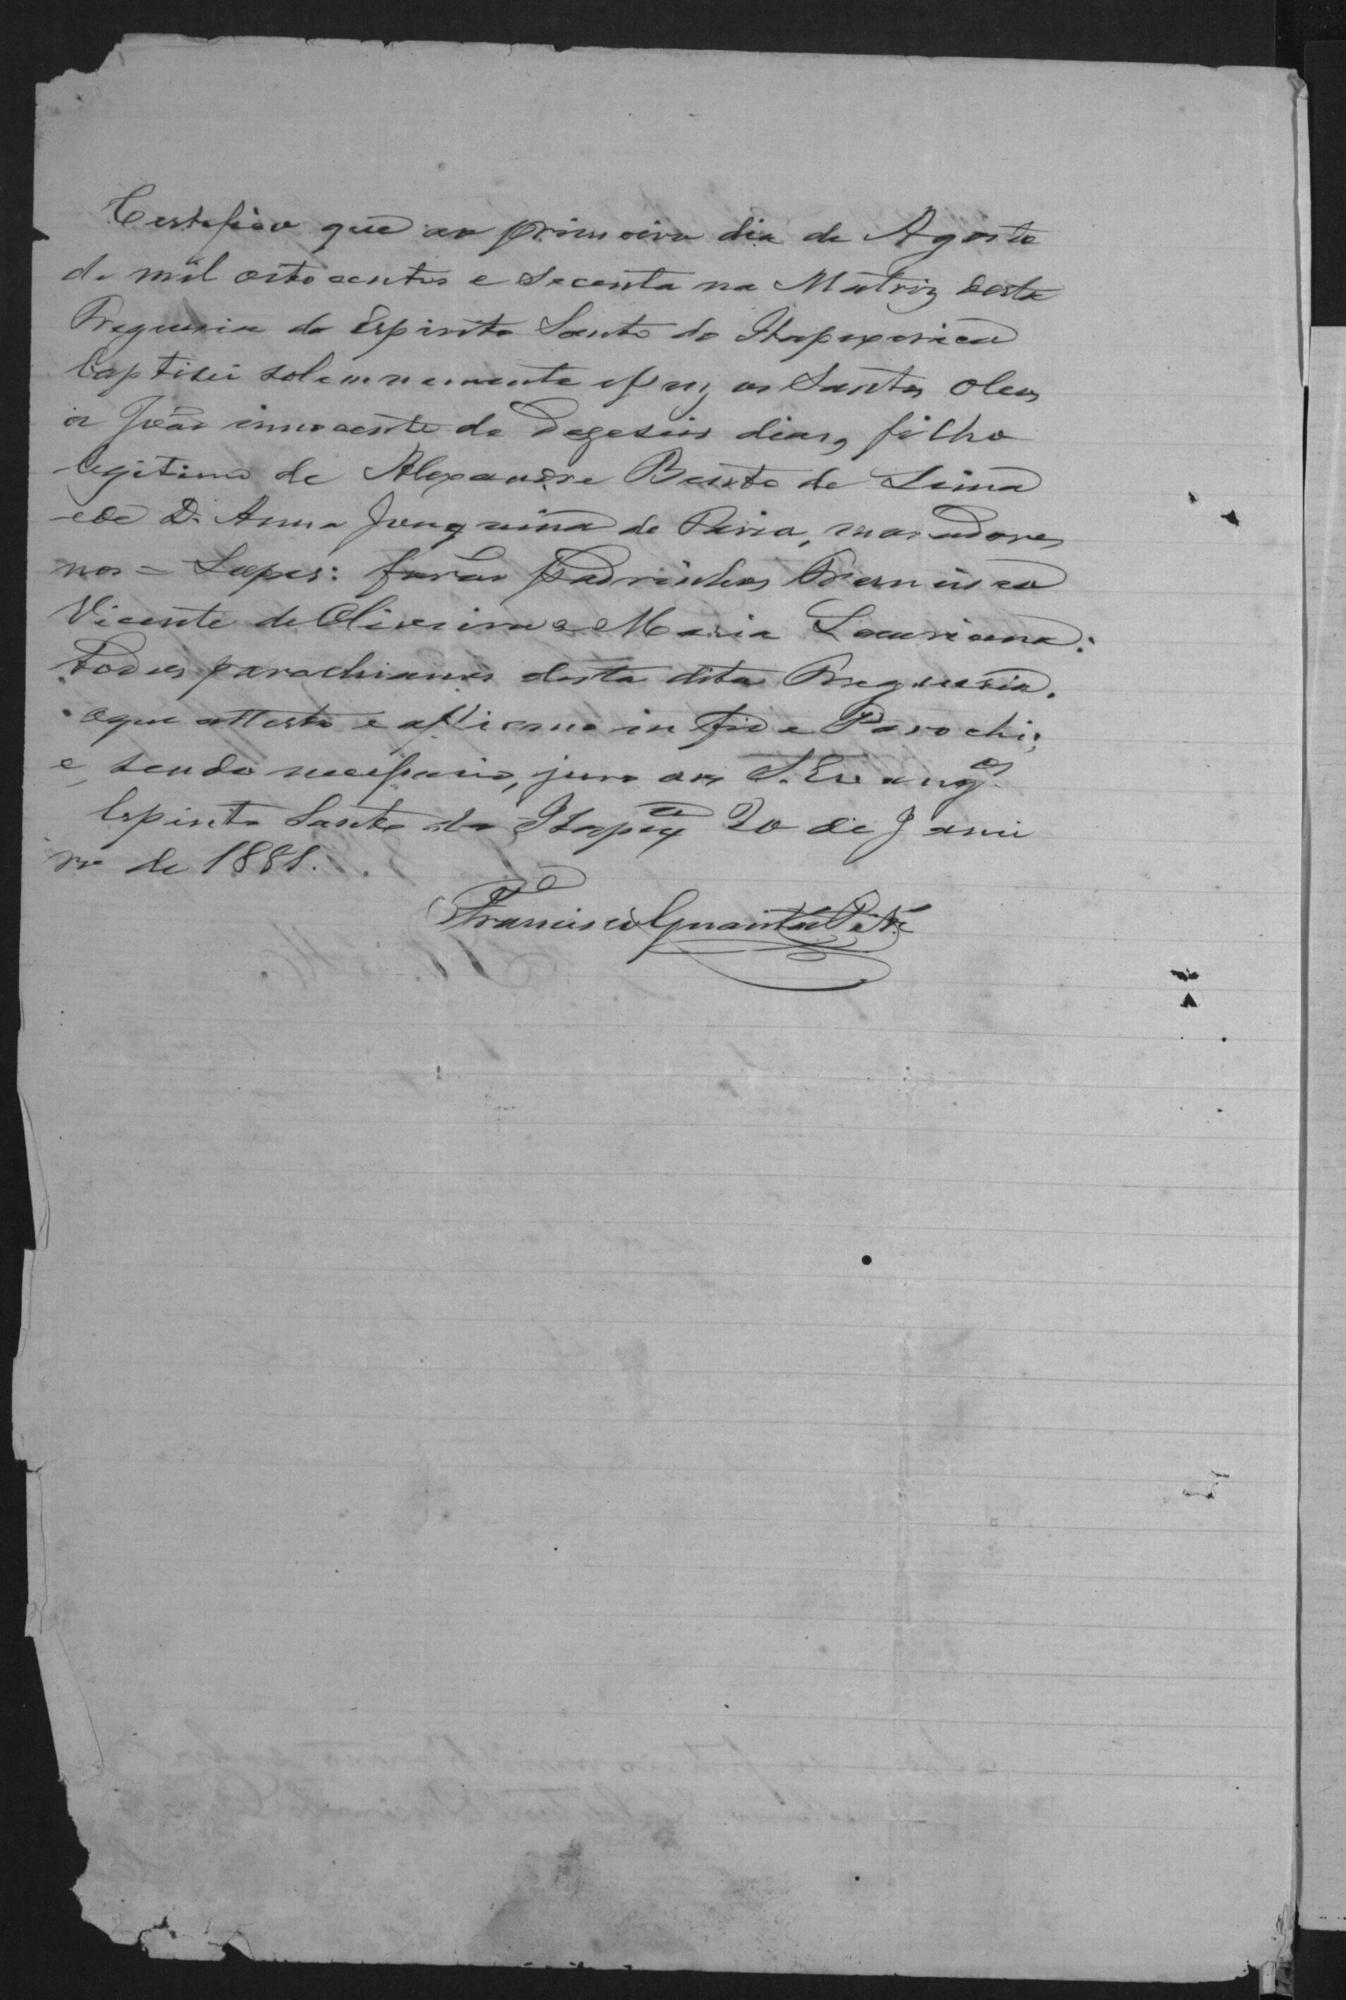 Certefico que ao primeiro dia de Agosto
de mil oito centos e secenta na Matriz desta
Freguesia do Espirito Santo do Itapixerica
baptisei solemnemente e puz os Santos Oleos
a João innocente de dezeseis dias, filho
legitimo de Alexandre Bento de Lima
e de D. Anna Joaquina de Faria, moradores
nos = Lopes: forão Padrinhos Francisco
Vicente de Oliveira e Maria Lauriana:
todos parochianos desta dita Freguesia.
O que attesto e affirmo in fide Parochi;
e, sendo necessario, juro aos S. Evangos
Espirito Santo do Itapixca 20 de Janei
ro de 1881.
Francisco Guaritá